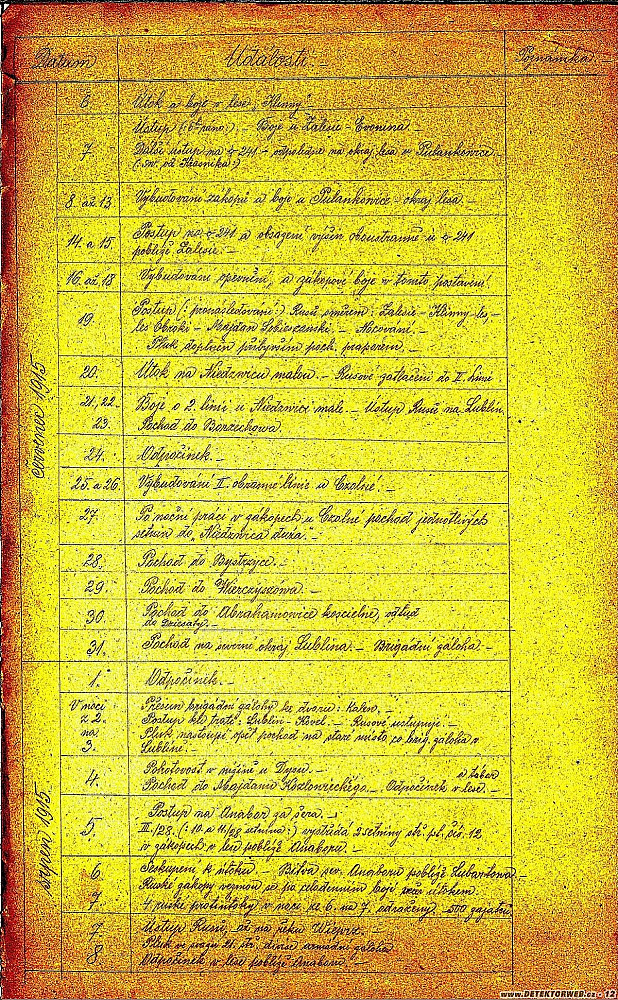 Datum Události: Poznámka
červenec 1915
6 Útok a boje v lese „Klinny“.
Ústup (: 6h ráno :) – Boje u Zalesie - Evonina.
7 Další ústup na 241 – odpoledne na okraj lesa v Pulankowice.
8. až 13. Vybudování zákopů a boje u Pulankowice – okraj lesa.
14. a 15. Postup na 241 a obsazení výšin oboustranně u 241
poblíže Zalesie. –
16. až 18 Vybudování opevnění, a zákopové boje v tomto postavení.
19. Postup (: pronásledování :) Rusů směrem: Zalesie – Klinny-les, –
les Obroki – Majdan Sobieszcanski. – Nocování. –
Pluk doplněn přibyvším poch. praporem. –
20. Útok na Niedzwicu malou. – Rusové zatlačeni do II. linie
21., 22. Boje o 2. linii u Niedzwice malé. – Ústup Rusů na Lublin.
23. Pochod do Borzechowa.
24. Odpočinek. –
25. a 26. Vybudování II. obranné linie u Czolné. –
27. Po noční práci v zákopech u Czolné pochod jednotlivých
setnin do „Niedzwica duza.“ –
28. Pochod do Bystrzyce. –
29. Pochod do Wierczyszówa. –
30. Pochod do Abrahamowice koscielne, odtud
31. Pochod na severní okraj Lublina. – Brigádní záloha. –
srpen 1915
1. Odpočinek. –
V noci Přesun brigádní zálohy ke dvoru:
z 2. Postup ke trati: Lublin - Kovel. – Rusové ustupují. –
na Pluk nastoupí opět pochod na staré místo co brig. záloha v
3. Lublině. –
4. Pohotovost v nížině u Dysu. –
Pochod do Majdanu Kozlowieckégo. – Odpočinek v lese. – a tábor
5. Postup na Anabor za šera. –
III./28. (: 10. a 11/28 setnina :) vystřídá 2 setniny stř. pl. čís. 12.
v zákopech v lese poblíže Anaboru. –
6. Seskupení k útoku. – Bitva sev. Anaboru poblíže Lubartowa –
Ruské zákopy vezmou se po celodenním boji útokem.
7 4 ruské protiútoky v noci ze 6. na 7. odraženy – 500 zajatců.
7 Ústup Rusů, až na řeku Wieprz. –
Pluk ve svazu 21. stř. divise armádní záloha
8. Odpočinek v lese poblíže Anaboru. –
www.DETEKTORWEB.cz - 12